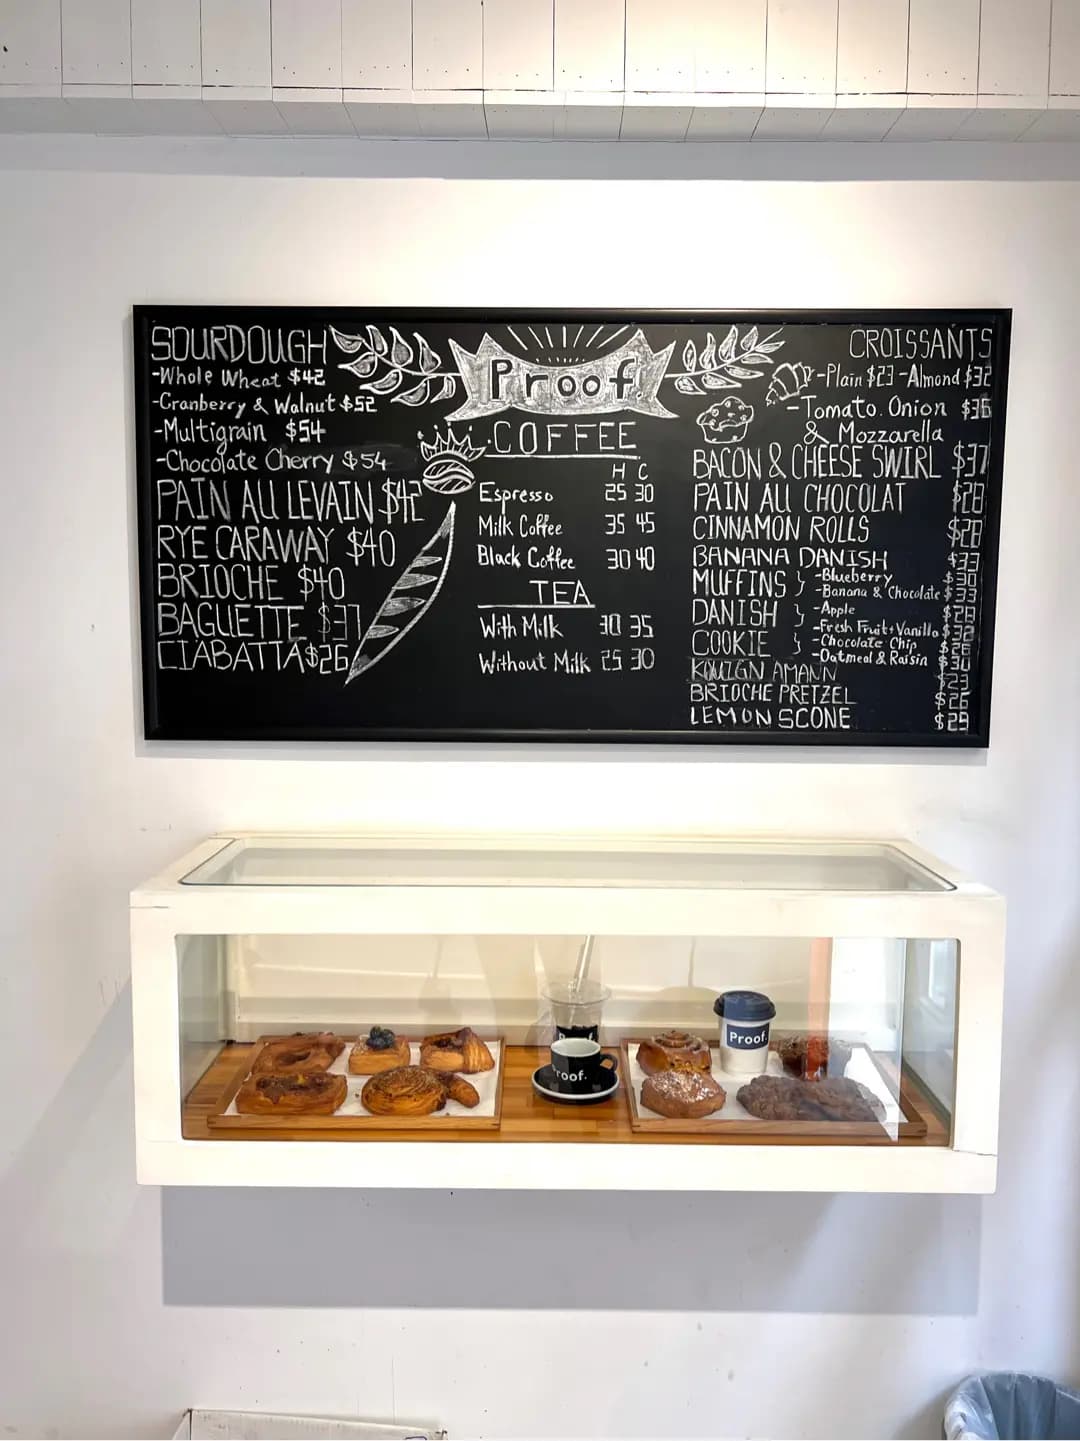 SOURDOUGH
-Whole Wheat $42
-Cranberry & Walnut $52
-Multigrain $54
-Chocolate Cherry $54
PAIN AU LEVAIN $42
RYE CARAWAY $40
BRIOCHE $40
BAGUETTE $37
CIABATTA $26
Proof.
COFFEE
H C
Espresso 25 30
Milk Coffee 35 45
Black Coffee 30 40
TEA
With Milk 30 35
Without Milk 25 30
CROISSANTS
-Plain $23 -Almond $32
-Tomato. Onion $36
& Mozzarella
BACON & CHEESE SWIRL $37
PAIN AU CHOCOLAT $28
CINNAMON ROLLS $28
BANANA DANISH $33
MUFFINS } -Blueberry $30
-Banana & Chocolate $33
DANISH } -Apple $28
-Fresh Fruit+Vanilla $32
COOKIE } -Chocolate Chip $26
-Oatmeal & Raisin $30
KOUIGN AMANN $23
BRIOCHE PRETZEL $26
LEMON SCONE $29
Proof.
Proof.